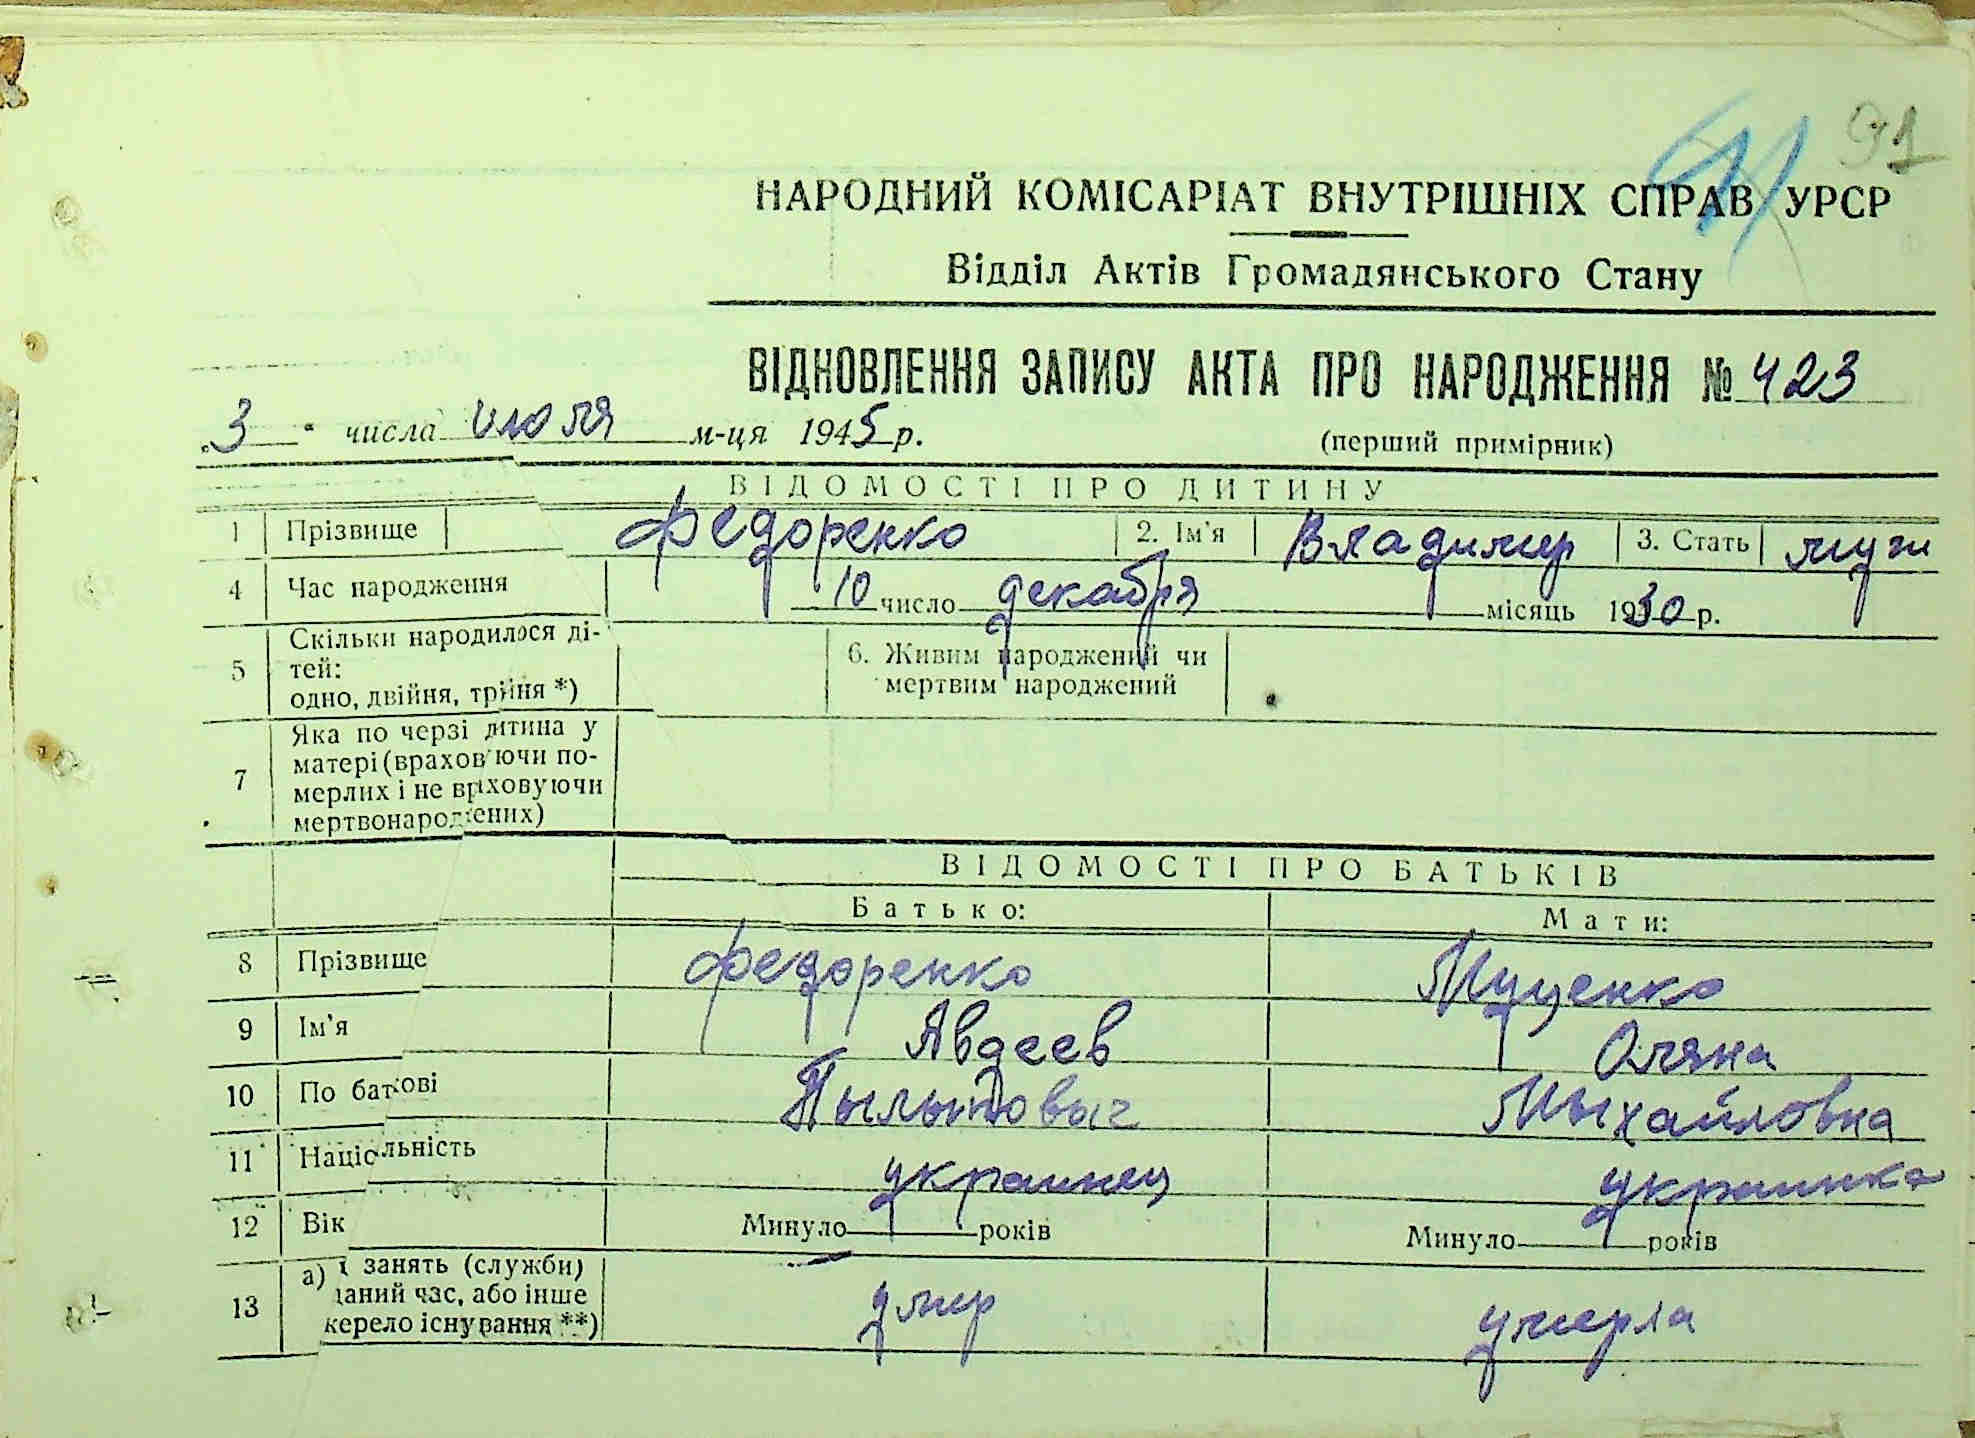 91
НАРОДНИЙ КОМІСАРІАТ ВНУТРІШНІХ СПРАВ УРСР
Відділ Актів Громадянського Стану
ВІДНОВЛЕННЯ ЗАПИСУ АКТА ПРО НАРОДЖЕННЯ № 423
„3“ числа июля м-ця 1945 р.
(перший примірник)
ВІДОМОСТІ ПРО ДИТИНУ
1 Прізвище Федоренко 2. Ім'я Владимир 3. Стать муж
4 Час народження 10 число декабря місяць 1930 р.
5 Скільки народилося ді-
тей:
одно, двійня, трійня *)
6. Живим народжений чи
мертвим народжений
7 Яка по черзі дитина у
матері (враховуючи по-
мерлих і не враховуючи
мертвонароджених)
ВІДОМОСТІ ПРО БАТЬКІВ
Батько: Мати:
8 Прізвище Федоренко Мущенко
9 Ім'я Авдеев Оляна
10 По батькові Пылыповыч Мыхайловна
11 Націо льність украинец украинка
12 Вік Минуло років Минуло років
13 а) занять (служби)
даний час, або інше
жерело існування **)
умер умерла